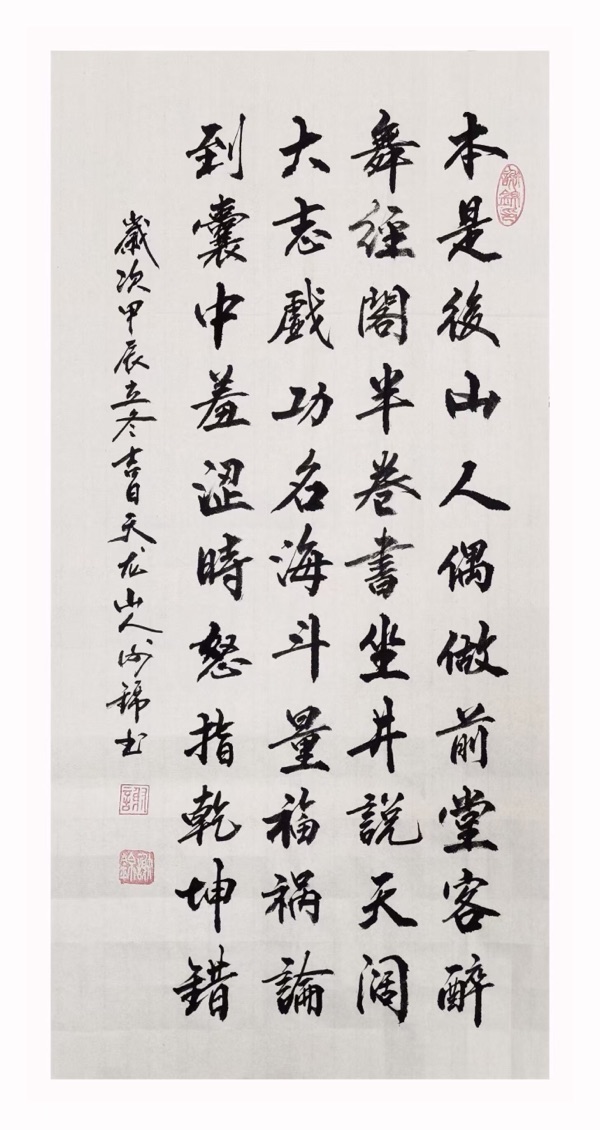 本是後山人偶做前堂客醉
舞經閣半卷書坐井說天闊
大志戲功名海斗量福禍論
到囊中羞澀時怒指乾坤錯
歲次甲辰立冬吉日天龙山人谢錦书